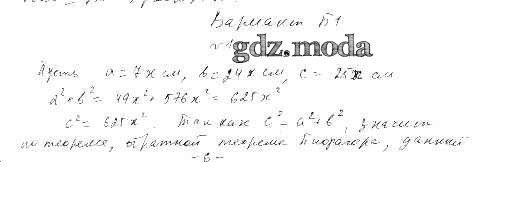 Вариант Б1
№1
gdz.moda
Пусть a = 7x см, b = 24x см, c = 25x см
a² + b² = 49x² + 576x² = 625x²
c² = 625x². Так как c² = a² + b², значит
по теореме, обратной теореме Пифагора, данный
- 6 -